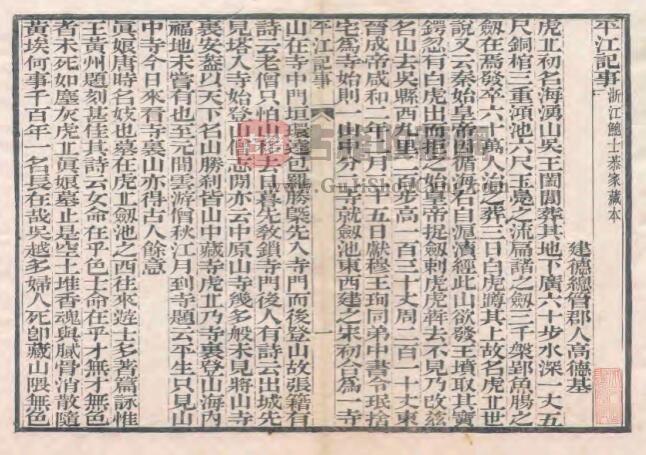 平江記事 浙江鮑士恭家藏本
建德總管郡人高德基
虎丘初名海湧山吳王闔閭葬其地下廣六十步水深一丈五
尺銅棺三重澒池六尺玉鳧之流扁諸之劔三千槃郢魚腸之
劔在焉發卒六十萬人治之葬三日白虎蹲其上故名虎丘世
說又云秦始皇帝因循海右自滬瀆經此山欲發王墳取其寶
鍔忽有白虎出而拒之始皇帝捉劔刺虎虎犇去不見乃改茲
名山去吳縣西九里二百步高一百三十丈周二百一十丈東
晉成帝咸和二年八月二十五日獻穆王珣同弟中書令珉捨
宅為寺始則一山中分二寺就劔池東西建之宋初合為一寺
平江記事 一
山在寺中門垣環遶包羅勝槩先入寺門而後登山故張籍有
詩云老僧只怕山移去日暮先敎鎖寺門後人有詩云出城先
見塔入寺始登山僧志閒亦云中原山寺幾多般未見將山寺
裏安蓋以天下名山勝刹皆山中藏寺虎丘乃寺裏登山海內
福地未嘗有也至元間雲游僧秋江月到寺題云平生只見山
中寺今日來看寺裏山亦得古人餘意
眞娘唐時名妓也墓在虎丘劔池之西往來遊士多著篇詠惟
王黃州題刻甚佳其詩云女命在乎色士命在乎才無才無色
者未死如塵灰虎丘眞娘墓止是空土堆香魂與膩骨消散隨
黃埃何事千百年一名長在哉吳越多婦人死卽藏山隈無色